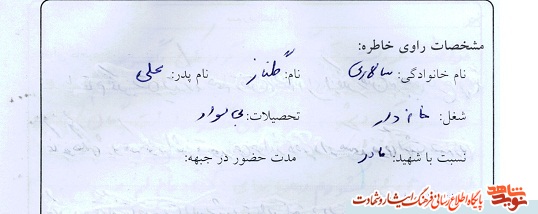 مشخصات راوی خاطره:
نام خانوادگی: سالاری نام: گلناز نام پدر: علی
شغل: خانه دار تحصیلات: بی سواد
نسبت با شهید: مادر مدت حضور در جبهه:
نوید شاهد
پایگاه اطلاع رسانی فرهنگ ایثار و شهادت